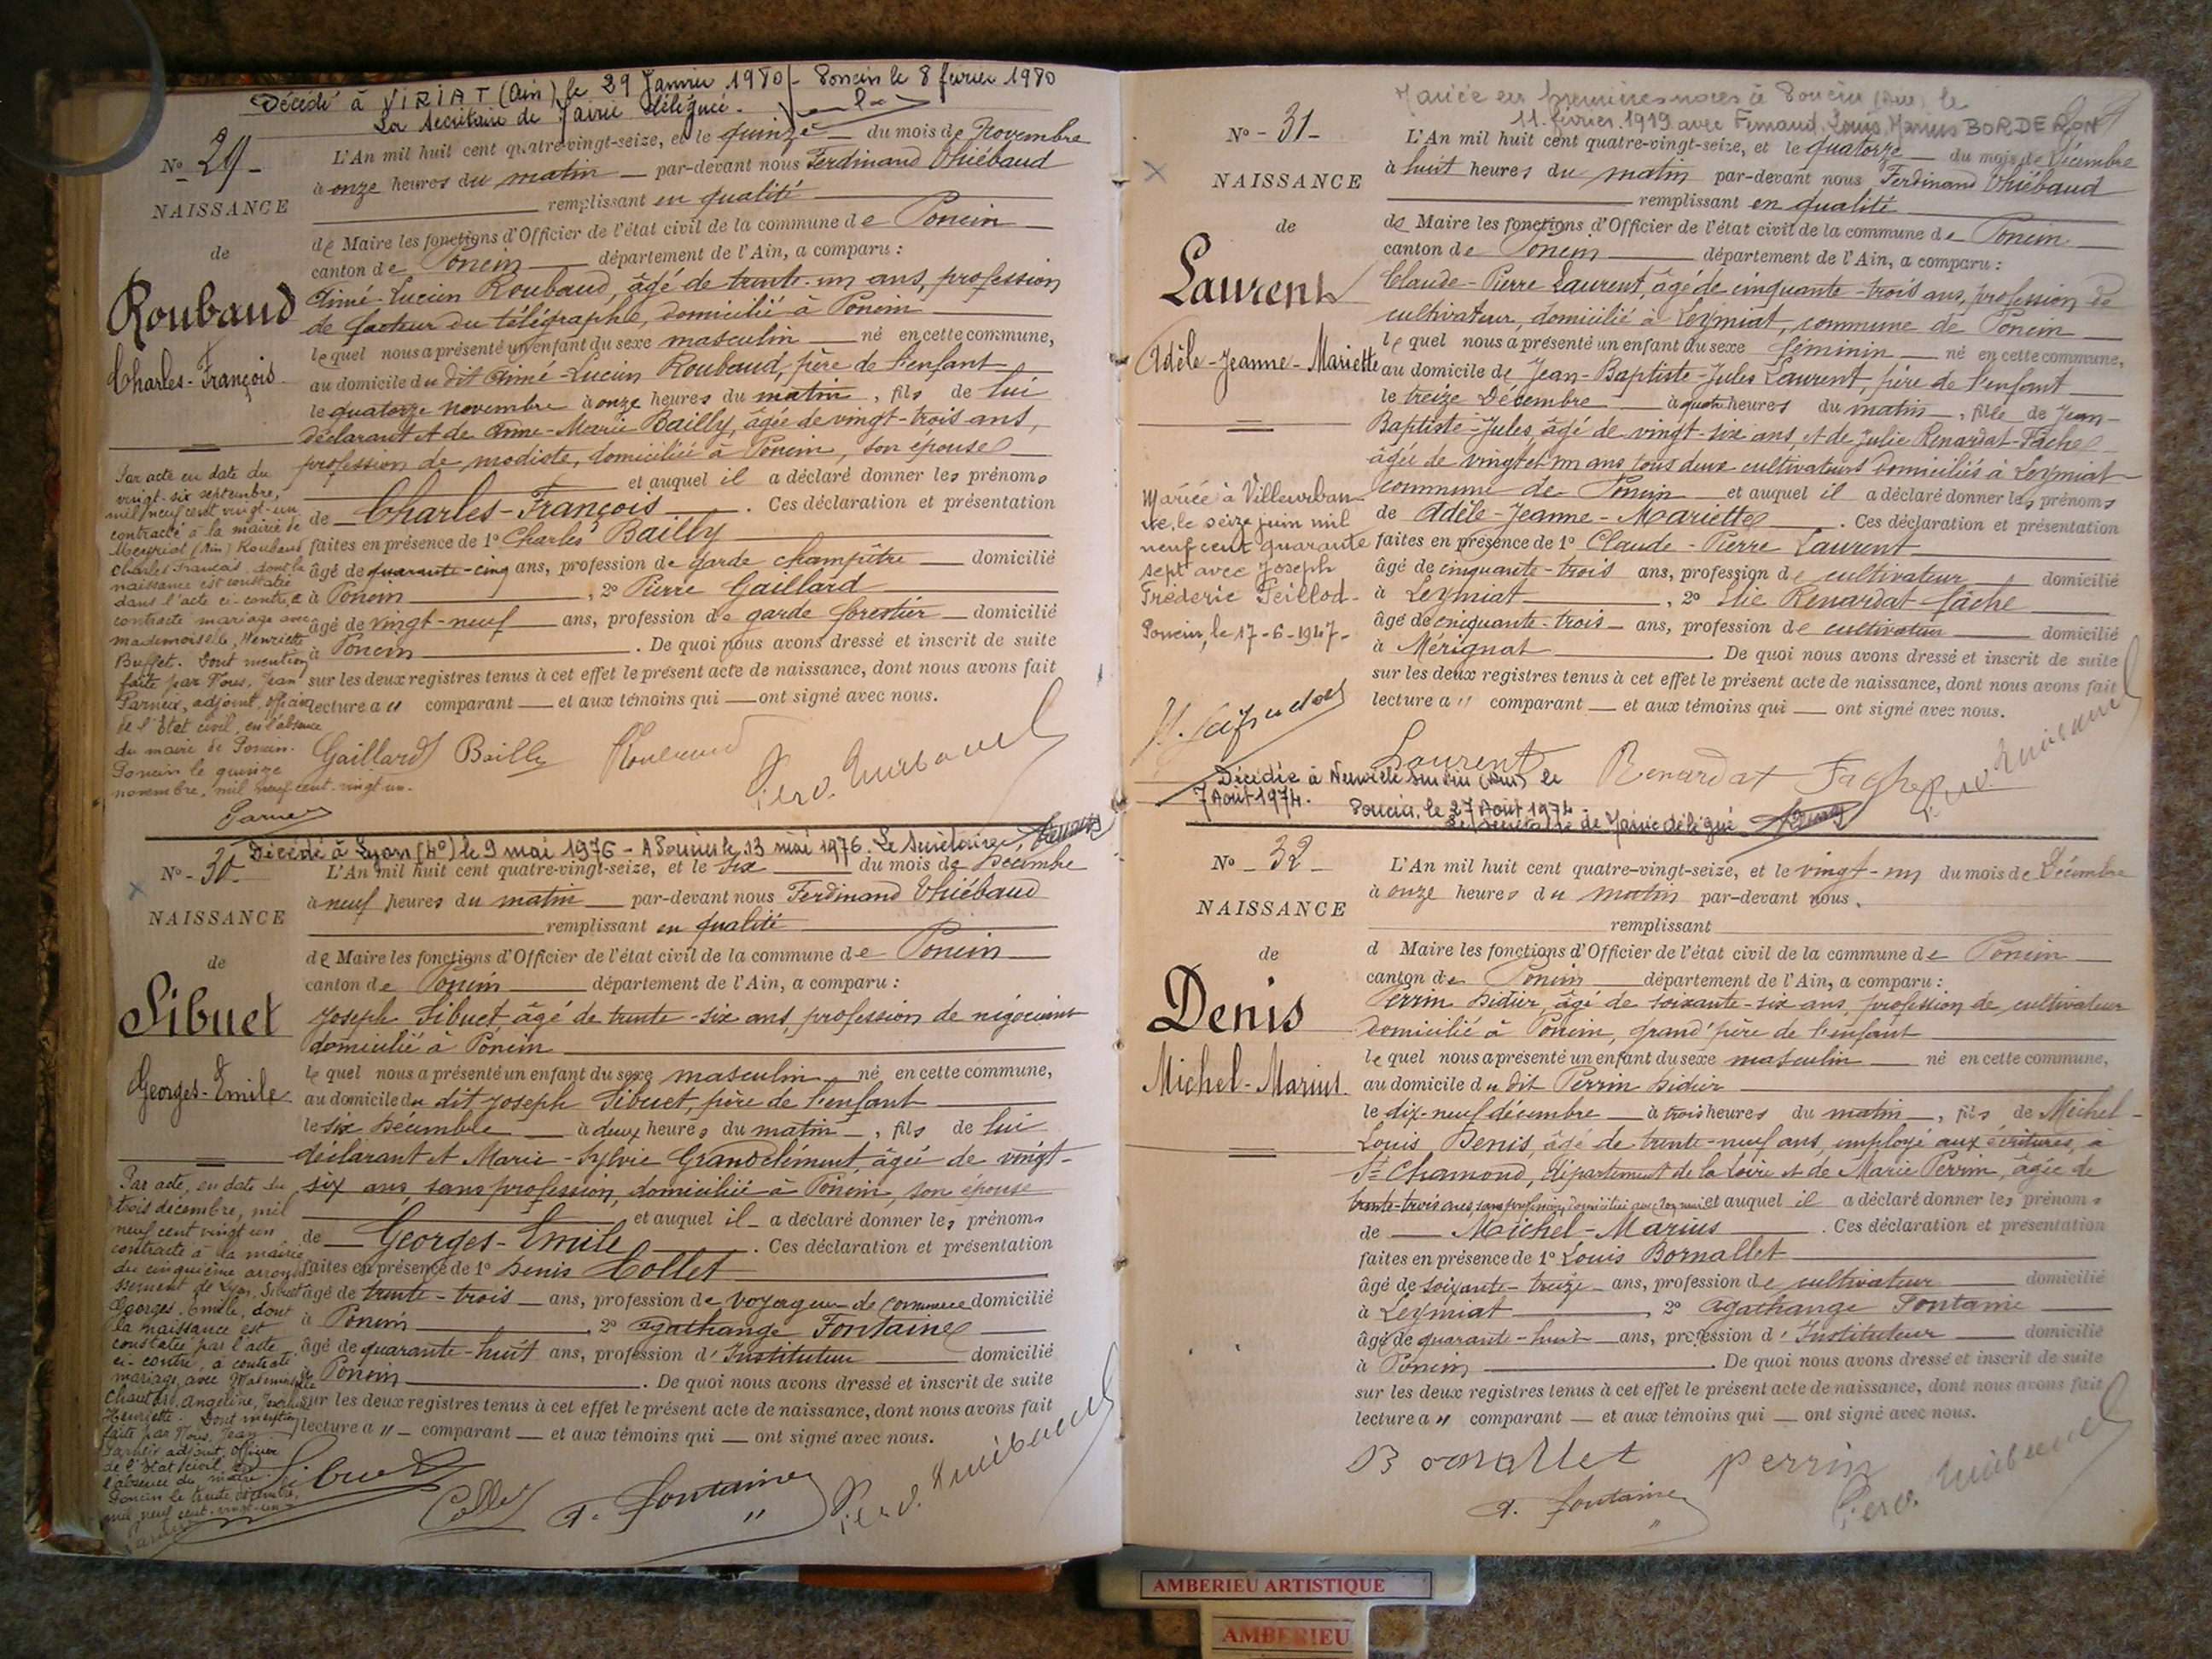 Décédé à VIRIAT (Ain) le 29 Janvier 1980 - Poncin le 8 février 1980
La Secrétaire de Mairie déléguée.
Nº 29-
NAISSANCE
de
Roubaud
Charles-François
L'An mil huit cent quatre-vingt-seize, et le quinze du mois de Novembre
à onze heures du matin par-devant nous Ferdinand Thiébaud
remplissant en qualité
de Maire les fonctions d'Officier de l'état civil de la commune de Poncin
canton de Poncin département de l'Ain, a comparu :
Aimé-Lucien Roubaud, âgé de trente-un ans, profession
de facteur du télégraphe, domicilié à Poncin
lequel nous a présenté un enfant du sexe masculin né en cette commune,
au domicile du dit Aimé-Lucien Roubaud, père de l'enfant
le quatorze novembre à onze heures du matin, fils de lui
déclarant et de Anne-Marie Bailly, âgée de vingt-trois ans,
profession de modiste, domiciliée à Poncin, son épouse
et auquel il a déclaré donner les prénoms
de Charles-François. Ces déclaration et présentation
faites en présence de 1º Charles Bailly
âgé de quarante-cinq ans, profession de garde champêtre domicilié
à Poncin, 2º Pierre Gaillard
âgé de vingt-neuf ans, profession de garde forestier domicilié
à Poncin. De quoi nous avons dressé et inscrit de suite
sur les deux registres tenus à cet effet le présent acte de naissance, dont nous avons fait
lecture au comparant et aux témoins qui ont signé avec nous.
Gaillard Bailly Roubaud Ferd. Thiébaud
Par acte en date du
vingt-six septembre,
mil neuf cent vingt-un
contracté à la mairie de
Meyriat (Ain) Roubaud
Charles François, dont la
naissance est constatée
dans l'acte ci-contre, a
contracté mariage avec
mademoiselle Henriette
Buffet. Dont mention
faite par Nous, Jean
Parnex, adjoint, officier
de l'Etat civil, en l'absence
du maire de Poncin.
Poncin le quinze
novembre, mil neuf cent vingt-un.
Parnex
Décédé à Lyon (4º) le 9 mai 1976 - A Poncin le 13 mai 1976. Le Secrétaire,
Nº - 30-
NAISSANCE
de
Sibuet
Georges-Emile
L'An mil huit cent quatre-vingt-seize, et le six du mois de Décembre
à neuf heures du matin par-devant nous Ferdinand Thiébaud
remplissant en qualité
de Maire les fonctions d'Officier de l'état civil de la commune de Poncin
canton de Poncin département de l'Ain, a comparu :
Joseph Sibuet âgé de trente-six ans, profession de négociant
domicilié à Poncin
lequel nous a présenté un enfant du sexe masculin né en cette commune,
au domicile du dit Joseph Sibuet, père de l'enfant
le six Décembre à deux heures du matin, fils de lui
déclarant et Marie-Sylvie Grandclément, âgée de vingt-
six ans, sans profession, domiciliée à Poncin, son épouse
et auquel il a déclaré donner les prénoms
de Georges-Emile. Ces déclaration et présentation
faites en présence de 1º Denis Collet
âgé de trente-trois ans, profession de voyageur de commerce domicilié
à Poncin 2º Agathange Fontaine
âgé de quarante-huit ans, profession d'Instituteur domicilié
à Poncin. De quoi nous avons dressé et inscrit de suite
sur les deux registres tenus à cet effet le présent acte de naissance, dont nous avons fait
lecture au comparant et aux témoins qui ont signé avec nous.
Sibuet Collet A. Fontaine Ferd. Thiébaud
Par acte, en date du
trois décembre, mil
neuf cent vingt un
contracté à la mairie
du cinquième arrondis-
sement de Lyon, Sibuet
Georges-Emile, dont
la naissance est
constatée par l'acte
ci-contre, a contracté
mariage avec Mademoiselle
Angeline,
Henriette. Dont mention
faite par Nous, Jean
Parnex adjoint, officier
de l'Etat civil, en
l'absence du maire.
Poncin le trente décembre,
mil neuf cent vingt-un
Parnex
Mariée en premières noces à Poncin (Ain) le
11 février 1919 avec Fernand, Louis, Marius BORDERON
Nº - 31-
NAISSANCE
de
Laurent
Adèle-Jeanne-Mariette
L'An mil huit cent quatre-vingt-seize, et le quatorze du mois de Décembre
à huit heures du matin par-devant nous Ferdinand Thiébaud
remplissant en qualité
de Maire les fonctions d'Officier de l'état civil de la commune de Poncin
canton de Poncin département de l'Ain, a comparu :
Claude-Pierre Laurent, âgé de cinquante-trois ans, profession de
cultivateur, domicilié à Leymiat, commune de Poncin
lequel nous a présenté un enfant du sexe féminin né en cette commune,
au domicile de Jean-Baptiste-Jules Laurent, père de l'enfant
le treize Décembre à quatre heures du matin, fille de Jean-
Baptiste-Jules, âgé de vingt-six ans et de Julie Renardat-Fâche
âgée de vingt et un ans tous deux cultivateurs domiciliés à Leymiat
commune de Poncin et auquel il a déclaré donner les prénoms
de Adèle-Jeanne-Mariette. Ces déclaration et présentation
faites en présence de 1º Claude-Pierre Laurent
âgé de cinquante-trois ans, profession de cultivateur domicilié
à Leymiat, 2º Elie Renardat-Fâche
âgé de cinquante-trois ans, profession de cultivateur domicilié
à Mérignat. De quoi nous avons dressé et inscrit de suite
sur les deux registres tenus à cet effet le présent acte de naissance, dont nous avons fait
lecture au comparant et aux témoins qui ont signé avec nous.
Laurent Renardat Fache Ferd. Thiébaud
Mariée à Villeurban-
ne, le seize juin mil
neuf cent quarante
sept avec Joseph
Frédéric Feillod-
Poncin, le 17-6-1947-
Décédée à Neuville sur Ain (Ain) le
7 Août 1974. Poncin, le 27 Août 1974
Le Secrétaire de Mairie délégué
Nº - 32-
NAISSANCE
de
Denis
Michel-Marius
L'An mil huit cent quatre-vingt-seize, et le vingt-un du mois de Décembre
à onze heures du matin par-devant nous.
remplissant
d Maire les fonctions d'Officier de l'état civil de la commune de Poncin
canton de Poncin département de l'Ain, a comparu :
Perrin Didier, âgé de soixante-six ans, profession de cultivateur
domicilié à Poncin, grand'père de l'enfant
lequel nous a présenté un enfant du sexe masculin né en cette commune,
au domicile du dit Perrin Didier
le dix-neuf décembre à trois heures du matin, fils de Michel-
Louis Denis, âgé de trente-neuf ans, employé aux écritures, à
St Chamond, département de la Loire et de Marie Perrin, âgée de
trente-trois ans, sans profession, domiciliée avec son mari et auquel il a déclaré donner les prénoms
de Michel-Marius. Ces déclaration et présentation
faites en présence de 1º Louis Bornallet
âgé de soixante-treize ans, profession de cultivateur domicilié
à Leymiat, 2º Agathange Fontaine
âgé de quarante-huit ans, profession d'Instituteur domicilié
à Poncin. De quoi nous avons dressé et inscrit de suite
sur les deux registres tenus à cet effet le présent acte de naissance, dont nous avons fait
lecture au comparant et aux témoins qui ont signé avec nous.
Bornallet Perrin
A. Fontaine Ferd. Thiébaud
AMBERIEU ARTISTIQUE
AMBERIEU